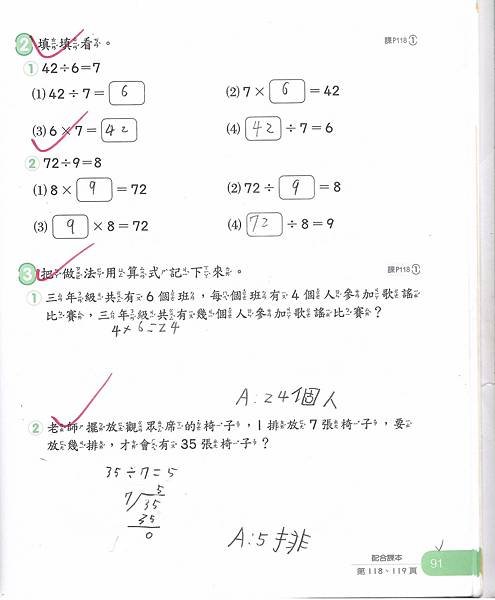 2 填填看。 課P118①
① 42÷6=7
(1) 42÷7= 6 (2) 7× 6 =42
(3) 6×7= 42 (4) 42 ÷7=6
② 72÷9=8
(1) 8× 9 =72 (2) 72÷ 9 =8
(3) 9 ×8=72 (4) 72 ÷8=9
3 把做法用算式記下來。 課P118①
① 三年級共有6個班,每個班有4個人參加歌謠
比賽,三年級共有幾個人參加歌謠比賽?
4×6=24
A:24個人
② 老師擺放觀眾席的椅子,1排放7張椅子,要
放幾排,才會有35張椅子?
35÷7=5
5
7 35
35
0
A:5排
配合課本
第118、119頁
91